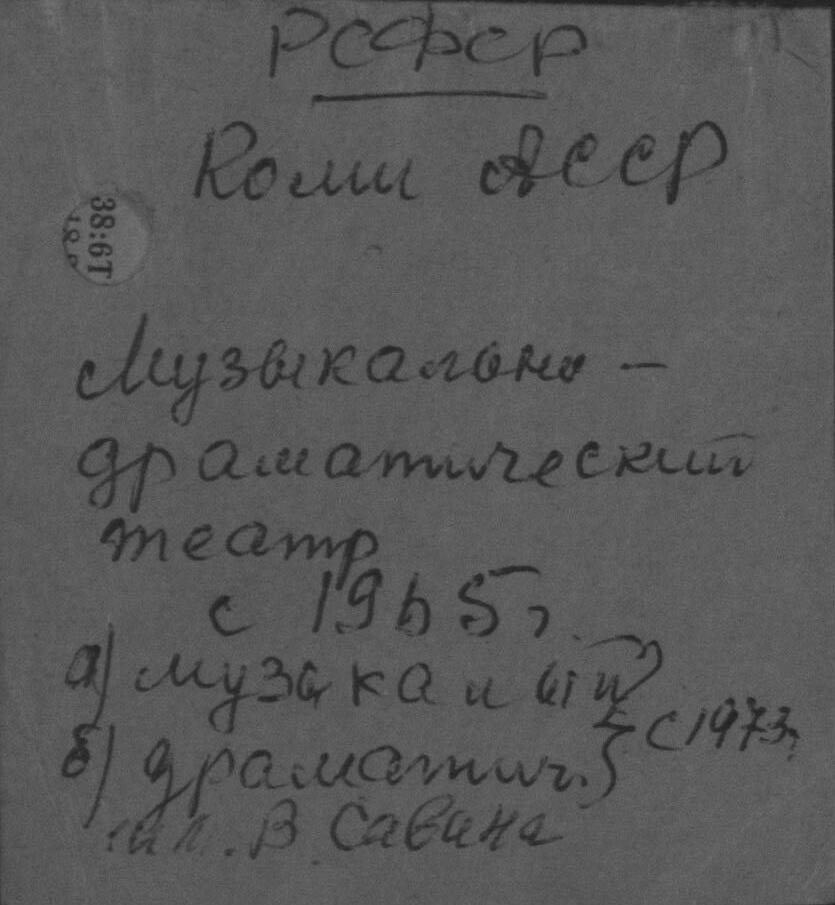 РСФСР
Коми АССР
38:6Т
Музыкально -
драматический
театр
с 1965 г.
а) музыкальный
б) драматич. } с 1973 г.
им. В. Савина